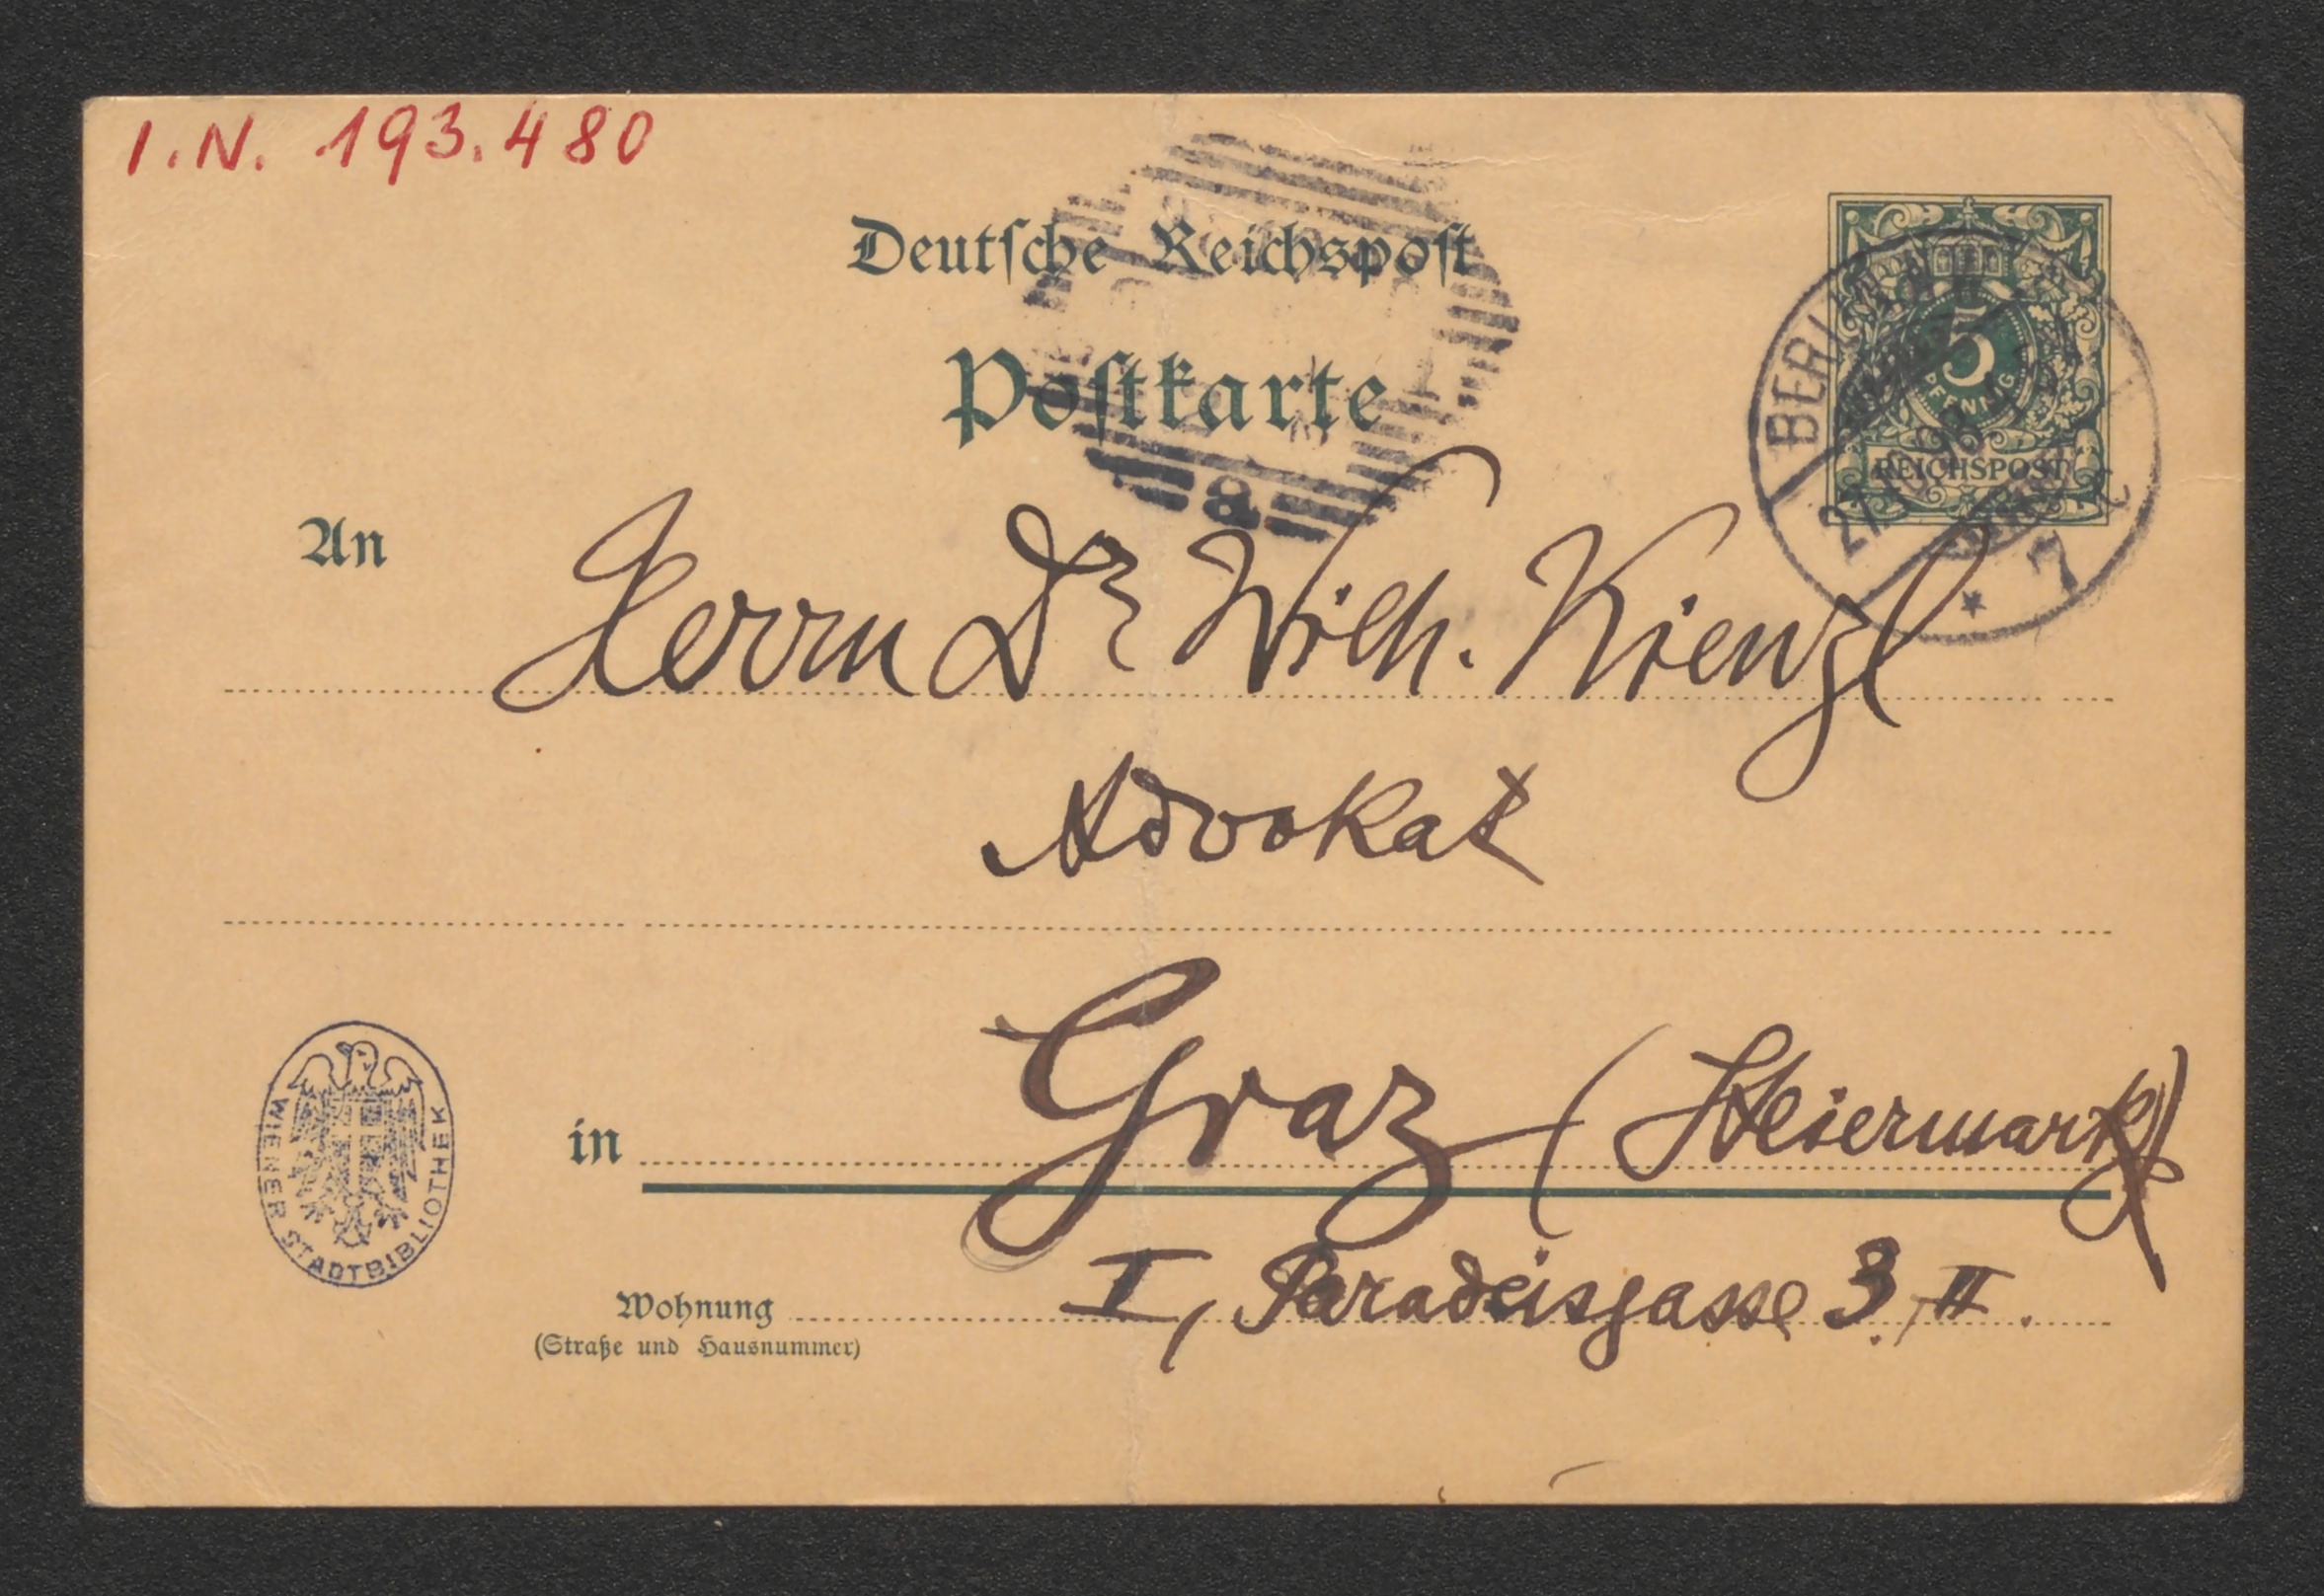 I.N. 193.480
Deutſche Reichspoſt
Poſtkarte
5
PFENNIG
REICHSPOST
BERLIN
98
a
An Herrn Dr Wilh. Kienzl
Advokat
in Graz (Steiermark)
I, Paradeisgasse 3, II.
Wohnung
(Straße und Hausnummer)
WIENER STADTBIBLIOTHEK